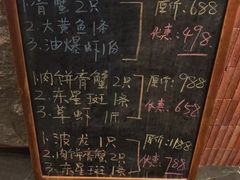 1.青蟹2只 原价:688
2.大黄鱼1条 优惠:498
3.油爆虾1份
1.肉饼青蟹2只 原价:988
2.东星斑1条 优惠:658
3.草虾1斤
1.波龙1只 原价:1188
2.肉饼青蟹2只 优惠:788
3.东星斑1条